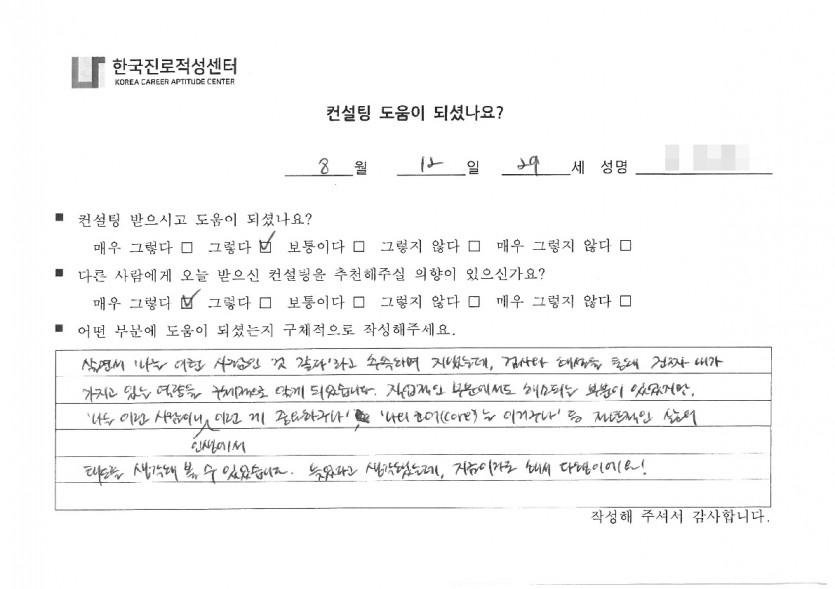 한국진로적성센터
KOREA CAREER APTITUDE CENTER
컨설팅 도움이 되셨나요?
8 월 12 일 29 세 성명
■ 컨설팅 받으시고 도움이 되셨나요?
매우 그렇다 □ 그렇다 ☑ 보통이다 □ 그렇지 않다 □ 매우 그렇지 않다 □
■ 다른 사람에게 오늘 받으신 컨설팅을 추천해주실 의향이 있으신가요?
매우 그렇다 ☑ 그렇다 □ 보통이다 □ 그렇지 않다 □ 매우 그렇지 않다 □
■ 어떤 부분에 도움이 되셨는지 구체적으로 작성해주세요.
살면서 '나는 이런 사람인 것 같다'라고 추측하며 지냈는데, 검사와 해석을 통해 내가
가지고 있는 역량을 구체적으로 알게 되었습니다. 직업적인 부분에서도 해소되는 부분이 있었지만,
'나는 이런 사람이니 이런 게 중요하구나', '나의 코어(core)는 이거구나' 등 전반적인 삶의
인생에서
태도를 생각해 볼 수 있었습니다. 늦었다고 생각했는데, 지금이라도 해서 다행이에요!
작성해 주셔서 감사합니다.